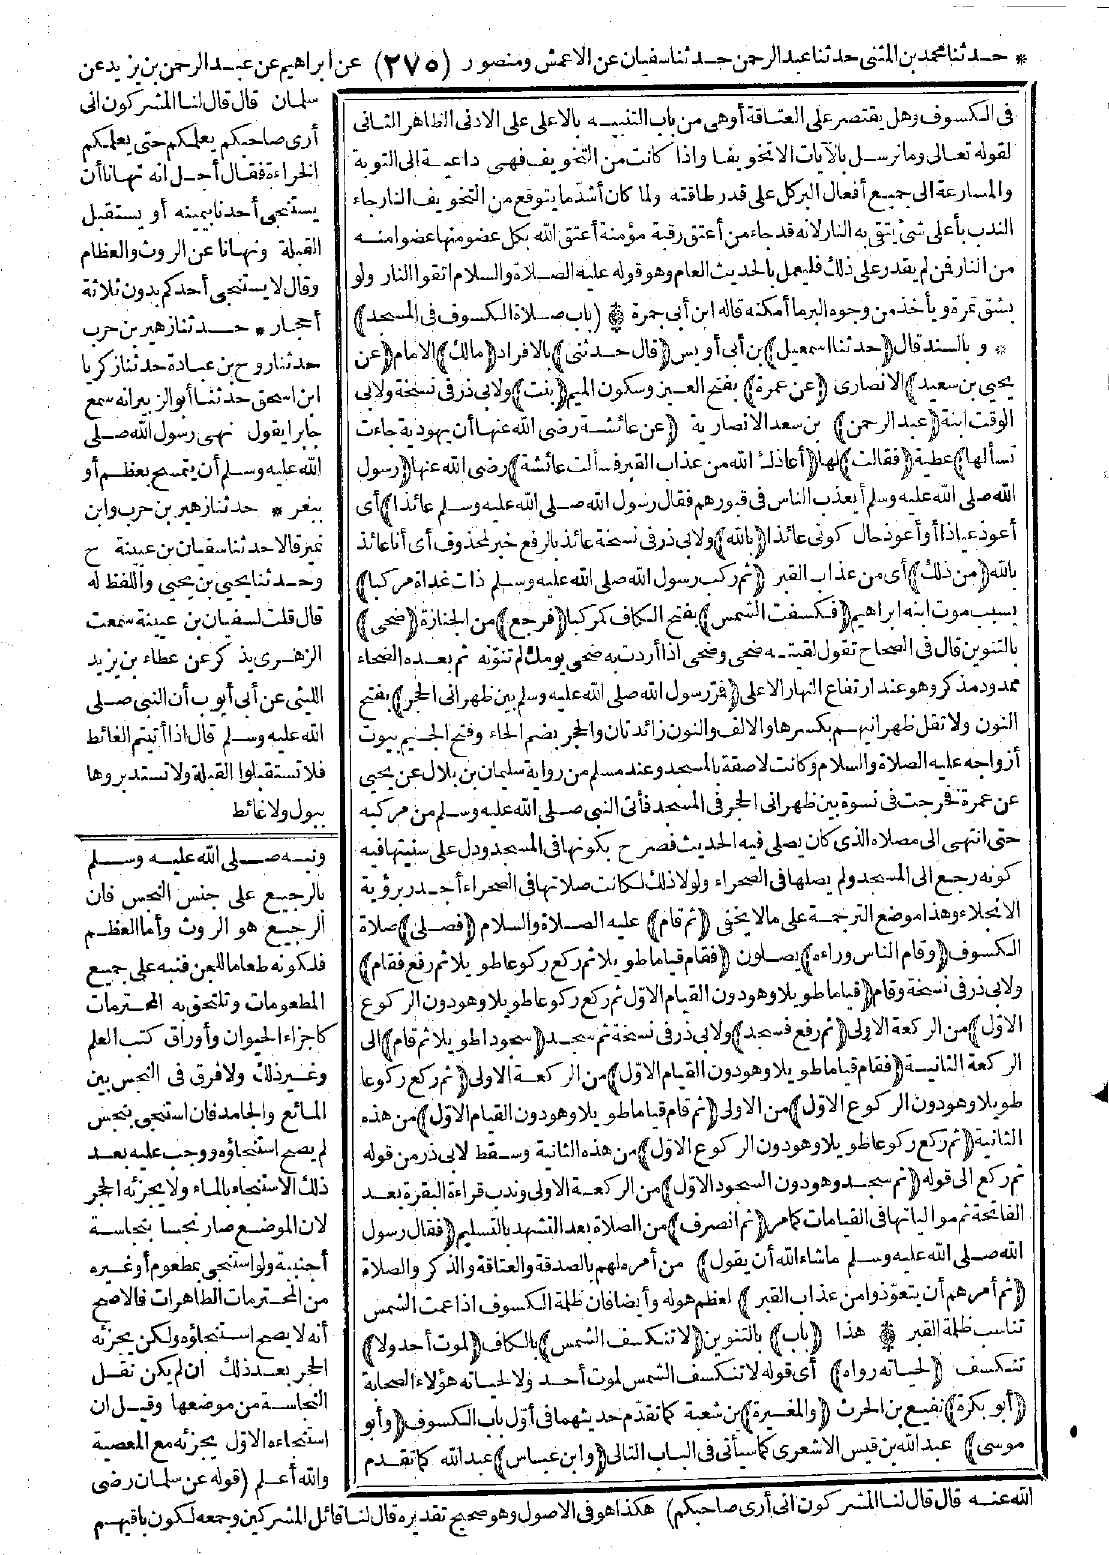 * حدثنا محمد بن المثنى حدثنا عبد الرحمن حدثنا سفيان عن الاعمش ومنصور (٢٧٥) عن ابراهيم عن عبد الرحمن بن يزيد عن
سلمان قال قال لنا المشركون انى
أرى صاحبكم يعلمكم حتى يعلمكم
الخراءة فقال أجل انه نهانا أن
يستنجى أحدنا بيمينه أو يستقبل
القبلة ونهانا عن الروث والعظام
وقال لا يستنجى أحدكم بدون ثلاثة
أحجار * حدثنا زهير بن حرب
حدثنا روح بن عبادة حدثنا زكريا
ابن اسحق حدثنا أبو الزبير انه سمع
جابرا يقول نهى رسول الله صلى
الله عليه وسلم أن يتمسح بعظم أو
ببعر * حدثنا زهير بن حرب وابن
نمير قالا حدثنا سفيان بن عيينة ح
وحدثنا يحيى بن يحيى واللفظ له
قال قلت لسفيان بن عيينة سمعت
الزهرى يذكر عن عطاء بن يزيد
الليثى عن أبى أيوب أن النبى صلى
الله عليه وسلم قال اذا أتيتم الغائط
فلا تستقبلوا القبلة ولا تستدبروها
ببول ولا غائط
ونبه صلى الله عليه وسلم
بالرجيع على جنس النجس فان
الرجيع هو الروث وأما العظم
فلكونه طعاما للجن فنبه على جميع
المطعومات وتلتحق به المحترمات
كاجزاء الحيوان وأوراق كتب العلم
وغير ذلك ولا فرق فى النجس بين
المائع والجامد فان استنجى بنجس
لم يصح استنجاؤه ووجب عليه بعد
ذلك الاستنجاء بالماء ولا يجزئه الحجر
لان الموضع صار نجسا بنجاسة
أجنبية ولو استنجى بمطعوم أو غيره
من المحترمات الطاهرات فالاصح
أنه لا يصح استنجاؤه ولكن يجزئه
الحجر بعد ذلك ان لم يكن نقل
النجاسة من موضعها وقيل ان
استنجاءه الاول يجزئه مع المعصية
والله أعلم (قوله عن سلمان رضى
فى الكسوف وهل يقتصر على العتاقة أو هى من باب التنبيه بالاعلى على الادنى الظاهر الثانى
لقوله تعالى وما نرسل بالآيات الا تخويفا واذا كانت من التخويف فهى داعية الى التوبة
والمسارعة الى جميع أفعال البر كل على قدر طاقته ولما كان أشد ما يتوقع من التخويف النار جاء
الندب بأعلى شئ يتقى به النار لانه قد جاء من أعتق رقبة مؤمنة أعتق الله بكل عضو منها عضوا منه
من النار فمن لم يقدر على ذلك فليعمل بالحديث العام وهو قوله عليه الصلاة والسلام اتقوا النار ولو
بشق تمرة ويأخذ من وجوه البر ما أمكنه قاله ابن أبى جمرة (باب صلاة الكسوف فى المسجد)
* وبالسند قال (حدثنا اسمعيل) بن أبى أويس (قال حدثنى) بالافراد (مالك) الامام (عن
يحيى بن سعيد) الانصارى (عن عمرة) بفتح العين وسكون الميم (بنت) ولابى ذر فى نسخة ولابى
الوقت ابنة (عبد الرحمن) بن سعد الانصارية (عن عائشة رضى الله عنها أن يهودية جاءت
تسألها) عطية (فقالت) لها (أعاذك الله من عذاب القبر فسألت عائشة) رضى الله عنها (رسول
الله صلى الله عليه وسلم أيعذب الناس فى قبورهم فقال رسول الله صلى الله عليه وسلم عائذا) أى
أعوذ عياذا أو أعوذ حال كونى عائذا (بالله) ولابى ذر فى نسخة عائذ بالرفع خبر لمحذوف أى أنا عائذ
بالله (من ذلك) أى من عذاب القبر (ثم ركب رسول الله صلى الله عليه وسلم ذات غداة مركبا)
بسبب موت ابنه ابراهيم (فكسفت الشمس) بفتح الكاف كمركبا (فرجع) من الجنازة (ضحى)
بالتنوين قال فى الصحاح تقول لقيته ضحى وضحى اذا أردت به ضحى يومك لم تنونه ثم بعده الضحاء
ممدود مذكر وهو عند ارتفاع النهار الاعلى (فمر رسول الله صلى الله عليه وسلم بين ظهرانى الحجر) بفتح
النون ولا تقل ظهرانيهم بكسرها والالف والنون زائدتان والحجر بضم الحاء وفتح الجيم بيوت
أزواجه عليه الصلاة والسلام وكانت لاصقة بالمسجد وعند مسلم من رواية سليمان بن بلال عن يحيى
عن عمرة فخرجت فى نسوة بين ظهرانى الحجر فى المسجد فأتى النبى صلى الله عليه وسلم من مركبه
حتى انتهى الى مصلاه الذى كان يصلى فيه الحديث فصرح بكونها فى المسجد ودل على سنيتها فيه
كونه رجع الى المسجد ولم يصلها فى الصحراء ولولا ذلك لكانت صلاتها فى الصحراء أجدر برؤية
الانجلاء وهذا موضع الترجمة على ما لا يخفى (ثم قام) عليه الصلاة والسلام (فصلى) صلاة
الكسوف (وقام الناس وراءه) يصلون (فقام قياما طويلا ثم ركع ركوعا طويلا ثم رفع فقام)
ولابى ذر فى نسخة وقام (قياما طويلا وهو دون القيام الاول ثم ركع ركوعا طويلا وهو دون الركوع
الاول) من الركعة الاولى (ثم رفع فسجد) ولابى ذر فى نسخة ثم سجد (سجودا طويلا ثم قام) الى
الركعة الثانية (فقام قياما طويلا وهو دون القيام الاول) من الركعة الاولى (ثم ركع ركوعا
طويلا وهو دون الركوع الاول) من الاولى (ثم قام قياما طويلا وهو دون القيام الاول) من هذه
الثانية (ثم ركع ركوعا طويلا وهو دون الركوع الاول) من هذه الثانية وسقط لابى ذر من قوله
ثم ركع الى قوله (ثم سجد وهو دون السجود الاول) من الركعة الاولى وندب قراءة البقرة بعد
الفاتحة ثم موالياتها فى القيامات كما مر (ثم انصرف) من الصلاة بعد التشهد بالتسليم (فقال رسول
الله صلى الله عليه وسلم ما شاء الله أن يقول) من أمره لهم بالصدقة والعتاقة والذكر والصلاة
(ثم أمرهم أن يتعوذوا من عذاب القبر) لعظم هوله وأيضا فان ظلمة الكسوف اذا عمت الشمس
تناسب ظلمة القبر هذا (باب) بالتنوين (لا تنكسف الشمس) بالكاف (لموت أحد ولا)
تنكسف (لحياته رواه) أى قوله لا تنكسف الشمس لموت أحد ولا لحياته هؤلاء الصحابة
(أبو بكرة) نفيع بن الحرث (والمغيرة) بن شعبة كما تقدم حديثهما فى أول باب الكسوف (وأبو
موسى) عبد الله بن قيس الاشعرى كما سيأتى فى الباب التالى (وابن عباس) عبد الله كما تقدم
الله عنه قال قال لنا المشركون انى أرى صاحبكم) هكذا هو فى الاصول وهو صحيح تقديره قال لنا قائل المشركين وجمعه لكون باقيهم